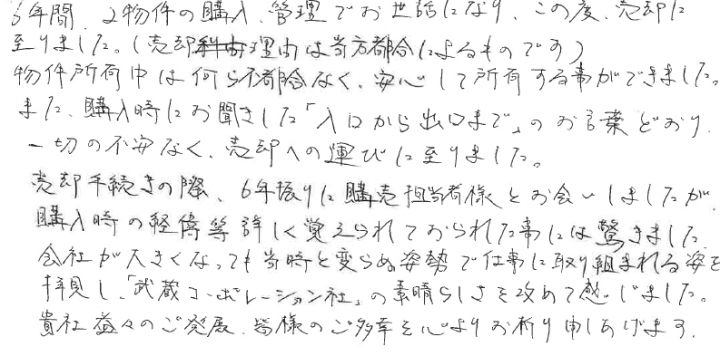 6年間、2物件の購入、管理でお世話になり、この度、売却に
至りました。(売却理由は当方都合によるものです)
物件所有中は何ら不都合なく、安心して所有する事ができました。
また、購入時にお聞きした「入口から出口まで」のお言葉どおり、
一切の不安なく、売却への運びに至りました。
売却手続きの際、6年振りに購売担当者様とお会いしましたが、
購入時の経緯等詳しく覚えられておられた事には驚きました。
会社が大きくなっても当時と変らぬ姿勢で仕事に取り組まれる姿を
拝見し、「武蔵コーポレーション社」の素晴らしさを改めて感じました。
貴社益々のご発展、皆様のご多幸を心よりお祈り申しあげます。